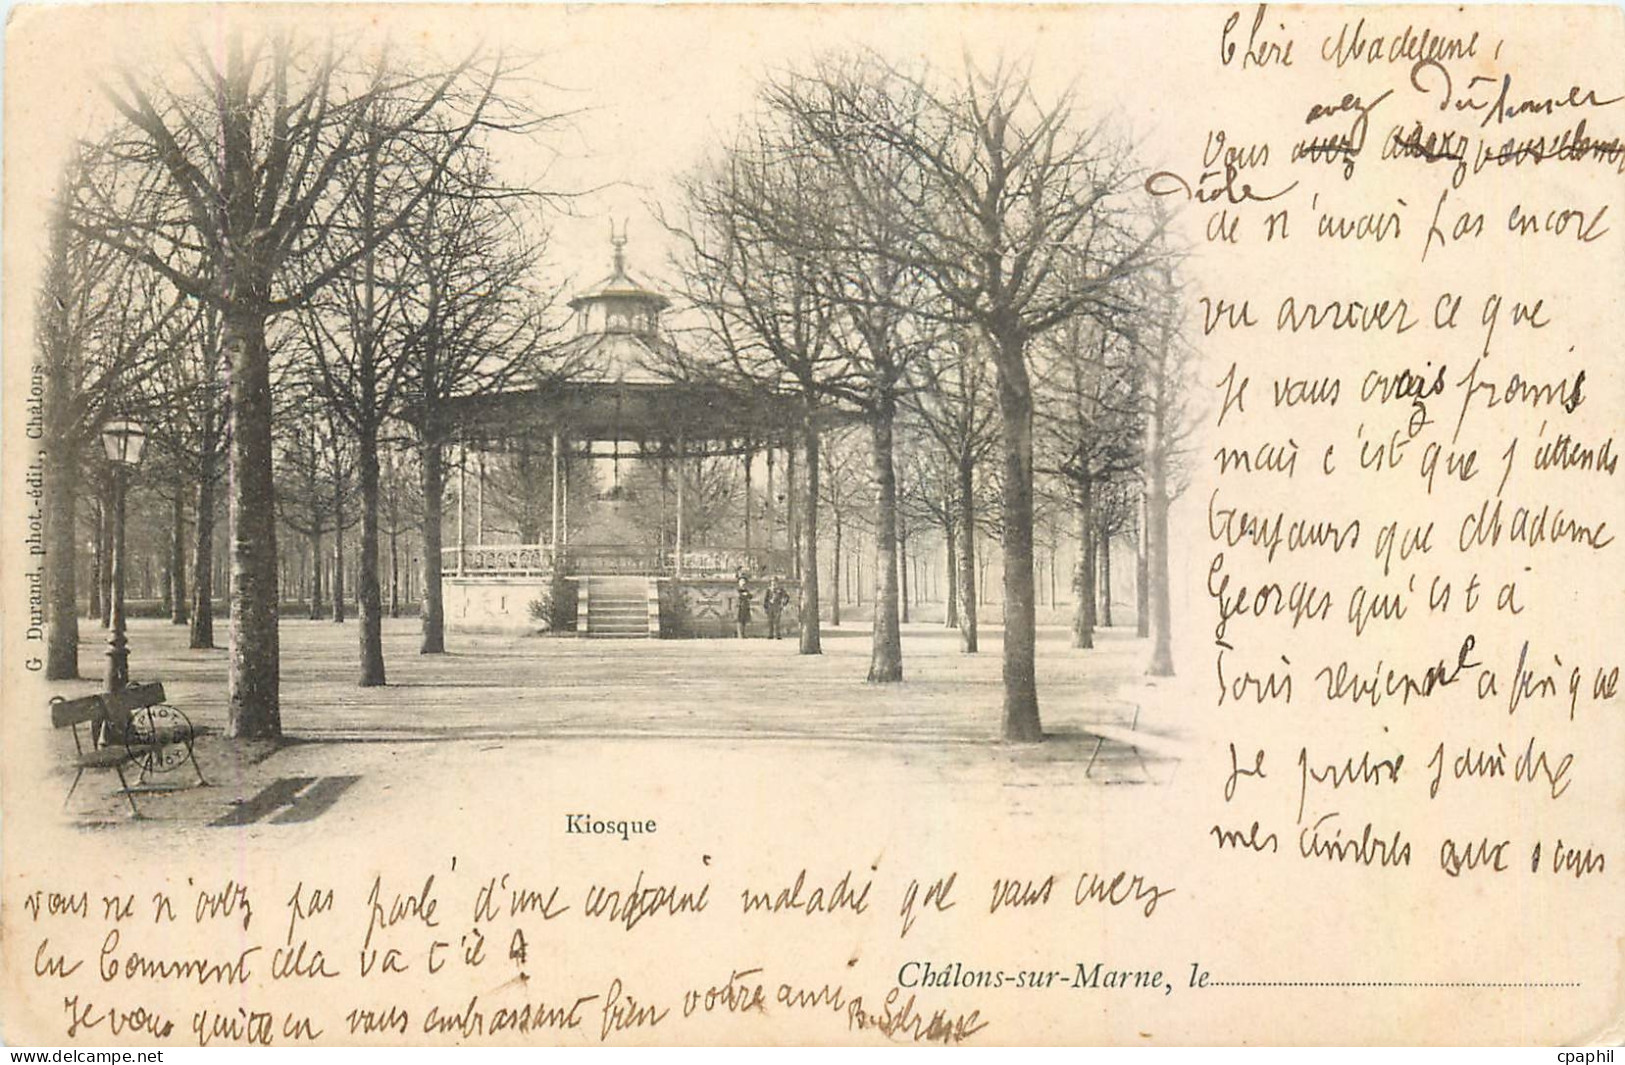 Chère Madeleine,
avez Dû trouver
Vous avez vous
drôle
de n'avoir pas encore
vu arriver ce que
je vous avais promis
mais c'est que j'attends
toujours que Madame
Georges qui est à
Paris revienne afin que
je puisse joindre
mes timbres aux vous
vous ne n'avez pas parlé d'une certaine maladie que vous avez
eu Comment cela va t'il ?
Je vous quitte en vous embrassant bien votre ami
Kiosque
Châlons-sur-Marne, le
G Durand, phot.-édit., Châlons
cpaphil
www.delcampe.net